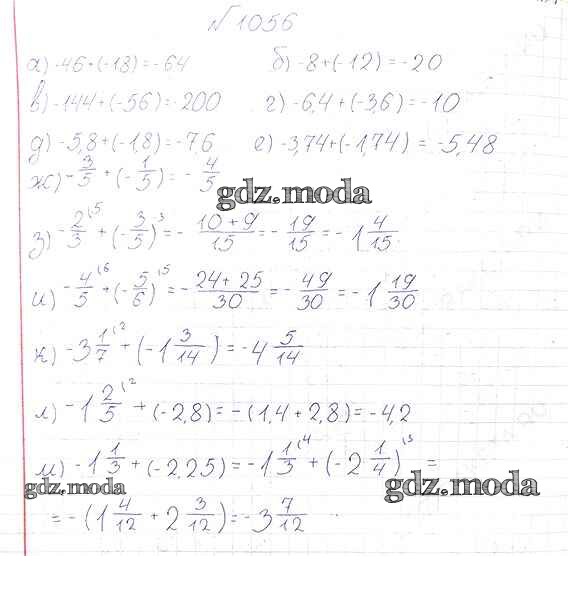 №1056
а) -46+(-18)=-64 б) -8+(-12)=-20
в) -144+(-56)=-200 г) -6,4+(-3,6)=-10
д) -5,8+(-1,8)=-7,6 е) -3,74+(-1,74)=-5,48
ж) -3/5+(-1/5)=-4/5
gdz.moda
з) -2/3(5+(-3/5)(3=-(10+9)/15=-19/15=-1 4/15
и) -4/5(6+(-5/6)(5=-(24+25)/30=-49/30=-1 19/30
к) -3 1/7(2+(-1 3/14)=-4 5/14
л) -1 2/5(2+(-2,8)=-(1,4+2,8)=-4,2
м) -1 1/3+(-2,25)=-1 1/3(4+(-2 1/4)(3=
gdz.moda gdz.moda
=-(1 4/12+2 3/12)=-3 7/12